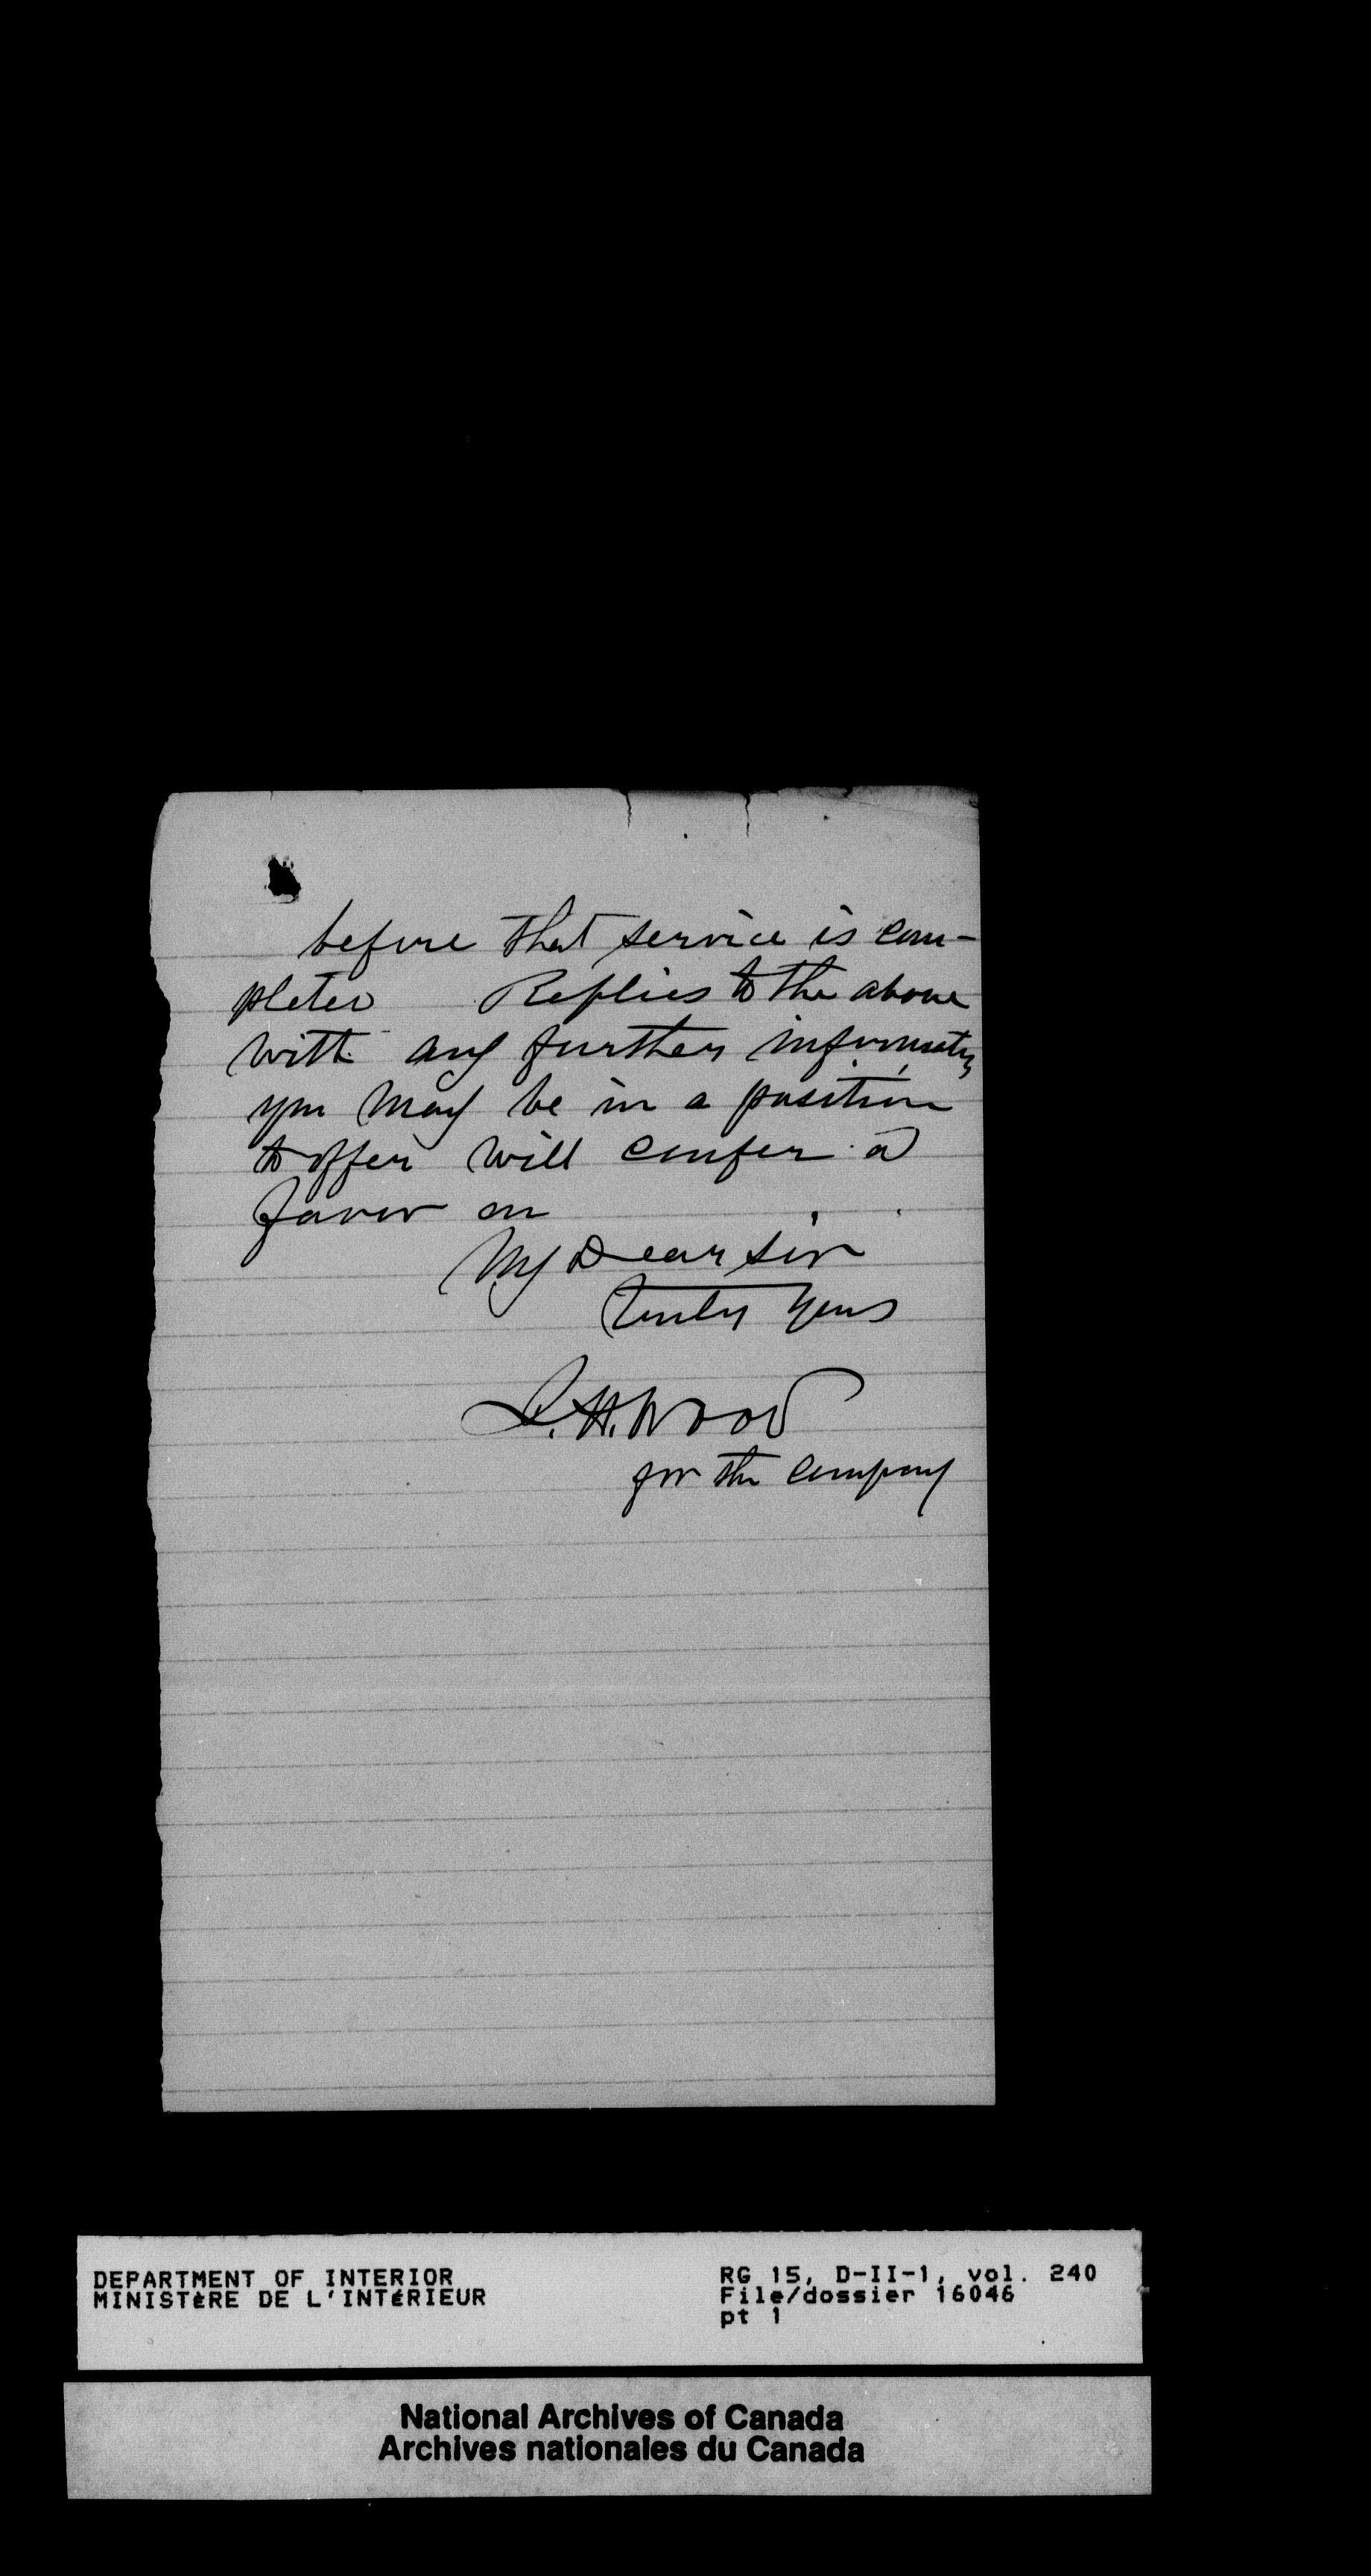 before that service is com-
pleted Replies to the above
with any further information
you may be in a position
to offer will confer a
favor on
My Dear sir
truly yours
S. H. Wood
for the company
DEPARTMENT OF INTERIOR
MINISTÈRE DE L'INTÉRIEUR
RG 15, D-II-1, vol. 240
File/dossier 16046
pt 1
National Archives of Canada
Archives nationales du Canada